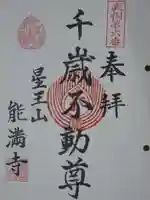 奉拝
千歳不動尊
星王山
能満寺